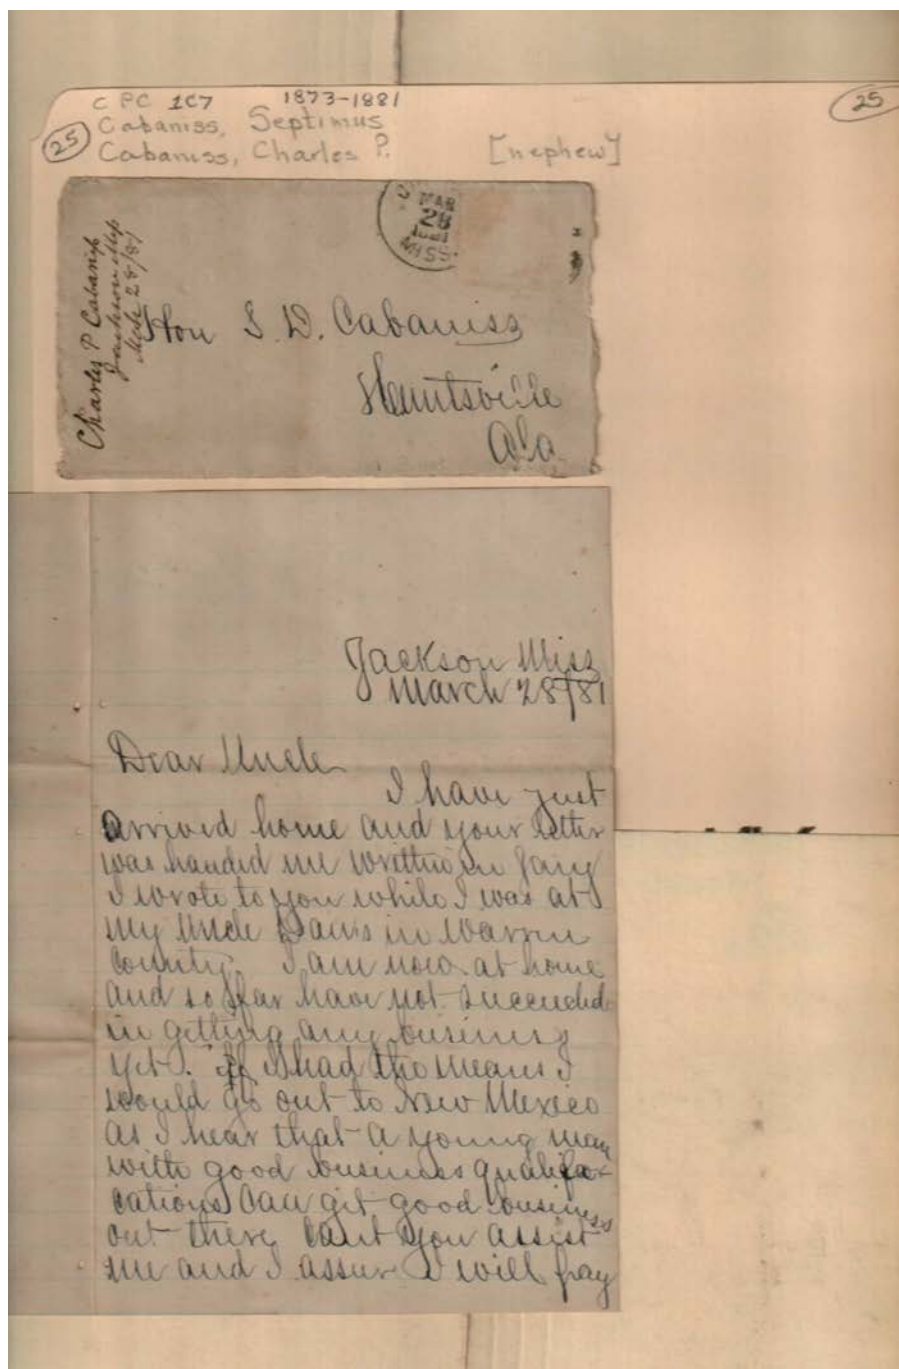 CPC 1C7 1873-1881
25 Cabaniss, Septimus
Cabaniss, Charles P. [nephew]
25
MAR
28
1881
MISS.
Charles P Cabaniss
Jackson Miss
Mch 28/81
Hon S. D. Cabaniss
Huntsville
Ala
Jackson Miss
March 28/81
Dear Uncle
I have just
arrived home and your letter
was handed me written in Jany
I wrote to you while I was at
my Uncle Davis in Warren
County. I am now at home
and so far have not succeeded
in getting any business
yet. If I had the means I
would go out to New Mexico
as I hear that a young man
with good business qualifa-
cations can get good business
out there cant you assist
me and I assure I will pay